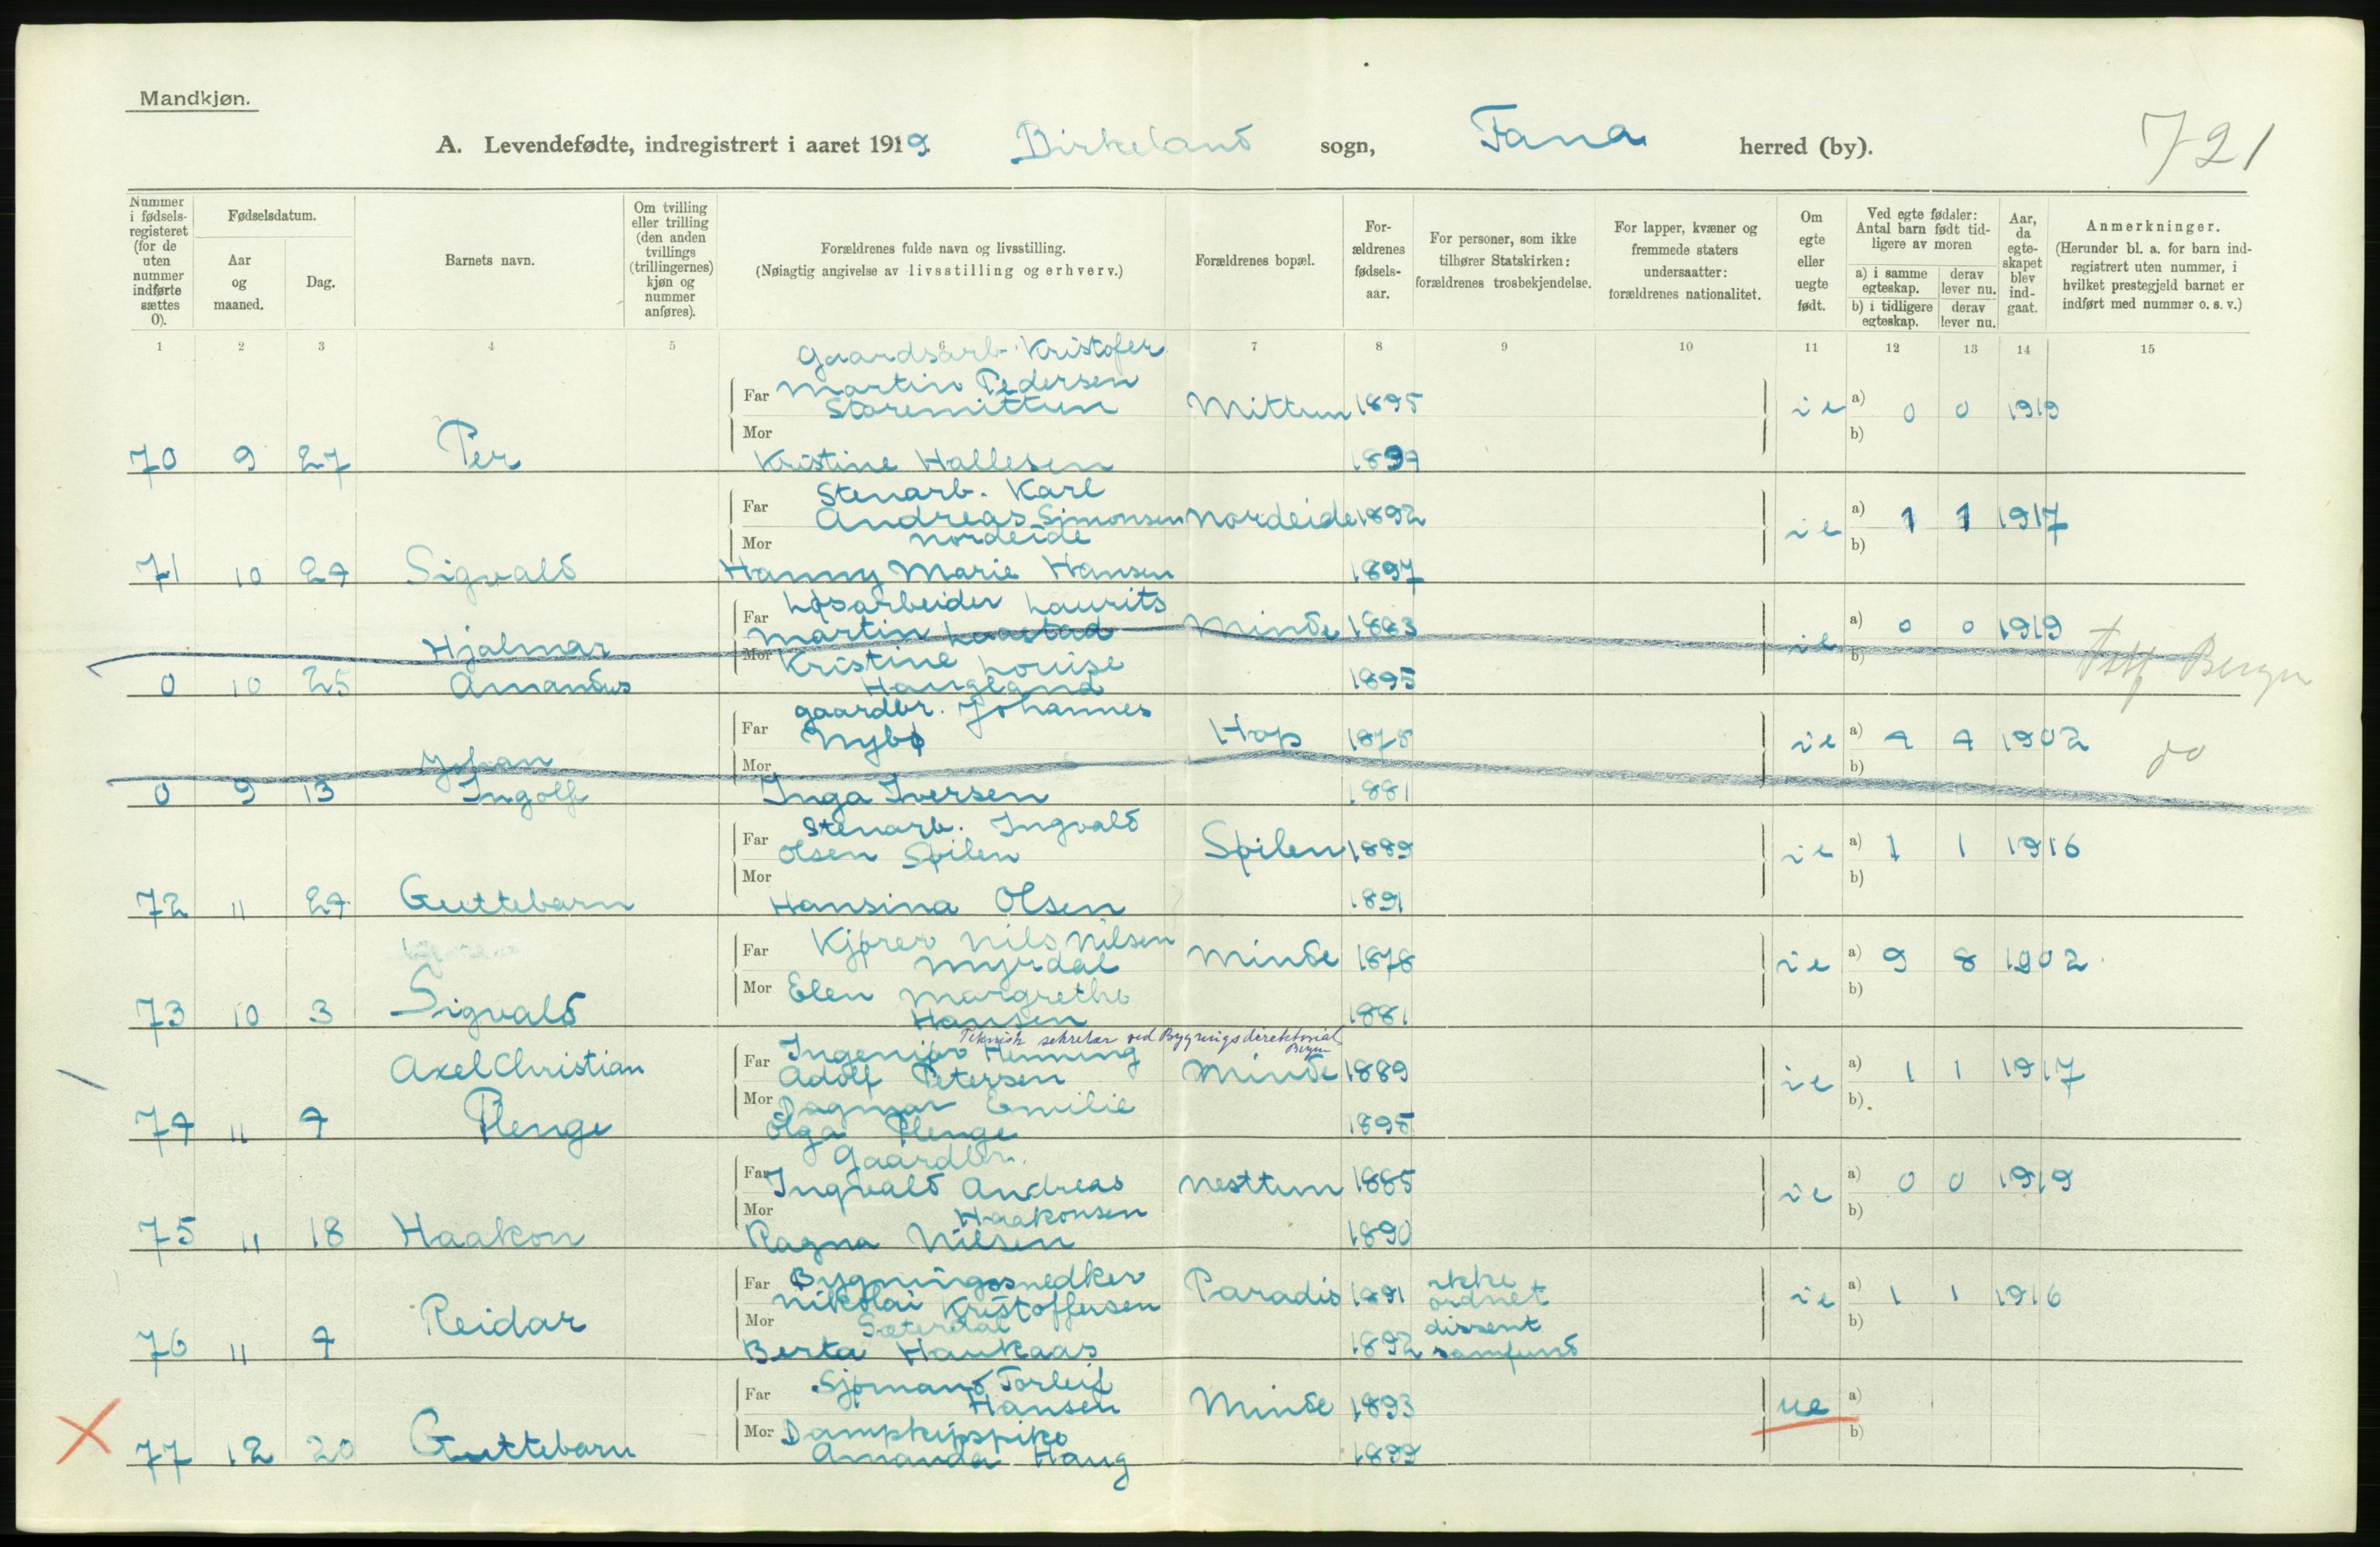 Mandkjøn.
A. Levendefødte, indregistrert i aaret 1919. Birkeland sogn, Fana herred (by). 721
Nummer i fødsels-registeret (for de uten nummer indførte sættes 0).
Fødselsdatum.
Aar og maaned.
Dag.
Barnets navn.
Om tvilling eller trilling (den anden tvillings (trillingernes) kjøn og nummer anføres).
Forældrenes fulde navn og livsstilling.
(Nøiagtig angivelse av livsstilling og erhverv.)
Forældrenes bopæl.
For-ældrenes fødsels-aar.
For personer, som ikke tilhører Statskirken: forældrenes trosbekjendelse.
For lapper, kvæner og fremmede staters undersaatter: forældrenes nationalitet.
Om egte eller uegte født.
Ved egte fødsler: Antal barn født tid-ligere av moren
a) i samme egteskap. derav lever nu.
b) i tidligere egteskap. derav lever nu.
Aar, da egte-skapet blev ind-gaat.
Anmerkninger.
(Herunder bl. a. for barn ind-registrert uten nummer, i hvilket prestegjeld barnet er indført med nummer o. s. v.)
1 2 3 4 5 6 7 8 9 10 11 12 13 14 15
Gaardsarb. Kristofer
Far Martin Pedersen
Storemittun Mittun 1895 ie a) 0 0 1919
Mor b)
70 9 27 Per Kristine Hallesen 1899
Stenarb. Karl
Far Andreas Simonsen Nordeide 1892 ie a) 1 1 1917
Mor Nordeide b)
71 10 24 Sigvald Hanny Marie Hansen 1897
Far Løsarbeider Laurits
Hjalmar Martin Laastad Minde 1883 ie a) 0 0 1919
Mor Kristine Louise b) Bergen
0 10 25 Amandus Haugland 1895
Gaardbr. Johannes
Far Nybø Hop 1878 ie a) 4 4 1902 do
Johan Mor b)
0 9 13 Ingolf Inga Iversen 1881
Stenarb. Ingvald
Far Olsen Spilen Spilen 1889 ie a) 1 1 1916
Mor b)
72 11 24 Guttebarn Hansina Olsen 1891
Far Kjører Nils Nilsen
Myrdal Minde 1878 ie a) 9 8 1902
Mor Elen Margrethe b)
73 10 3 Sigvald Hansen 1881
Teknisk sekretær ved Bygningsdirektoriat
Bergen
Far Ingeniør Henning
Axel Christian Adolf Petersen Minde 1889 ie a) 1 1 1917
Mor Dagmar Emilie b)
74 11 4 Plenge Olga Plenge 1895
Gaardbr.
Far Ingvald Andreas Nesttun 1885 ie a) 0 0 1919
Mor Haakonsen b)
75 11 18 Haakon Ragna Nilsen 1890
Far Bygningssnedker
Nikolai Kristoffersen Paradis 1891 ikke ordnet ie a) 1 1 1916
Mor Sæterdal dissent b)
76 11 4 Reidar Berta Haukaas 1892 samfund
Far Sjømand Torleif
Hansen Minde 1893 ue a)
Mor b)
77 12 20 Guttebarn Amanda Haug 1899